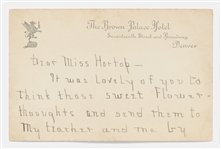 The Brown Palace Hotel
Seventeenth Street and Broadway
Denver
Dear Miss Hortop—
It was lovely of you to
think those sweet Flower-
thoughts and send them to
My teacher and me by